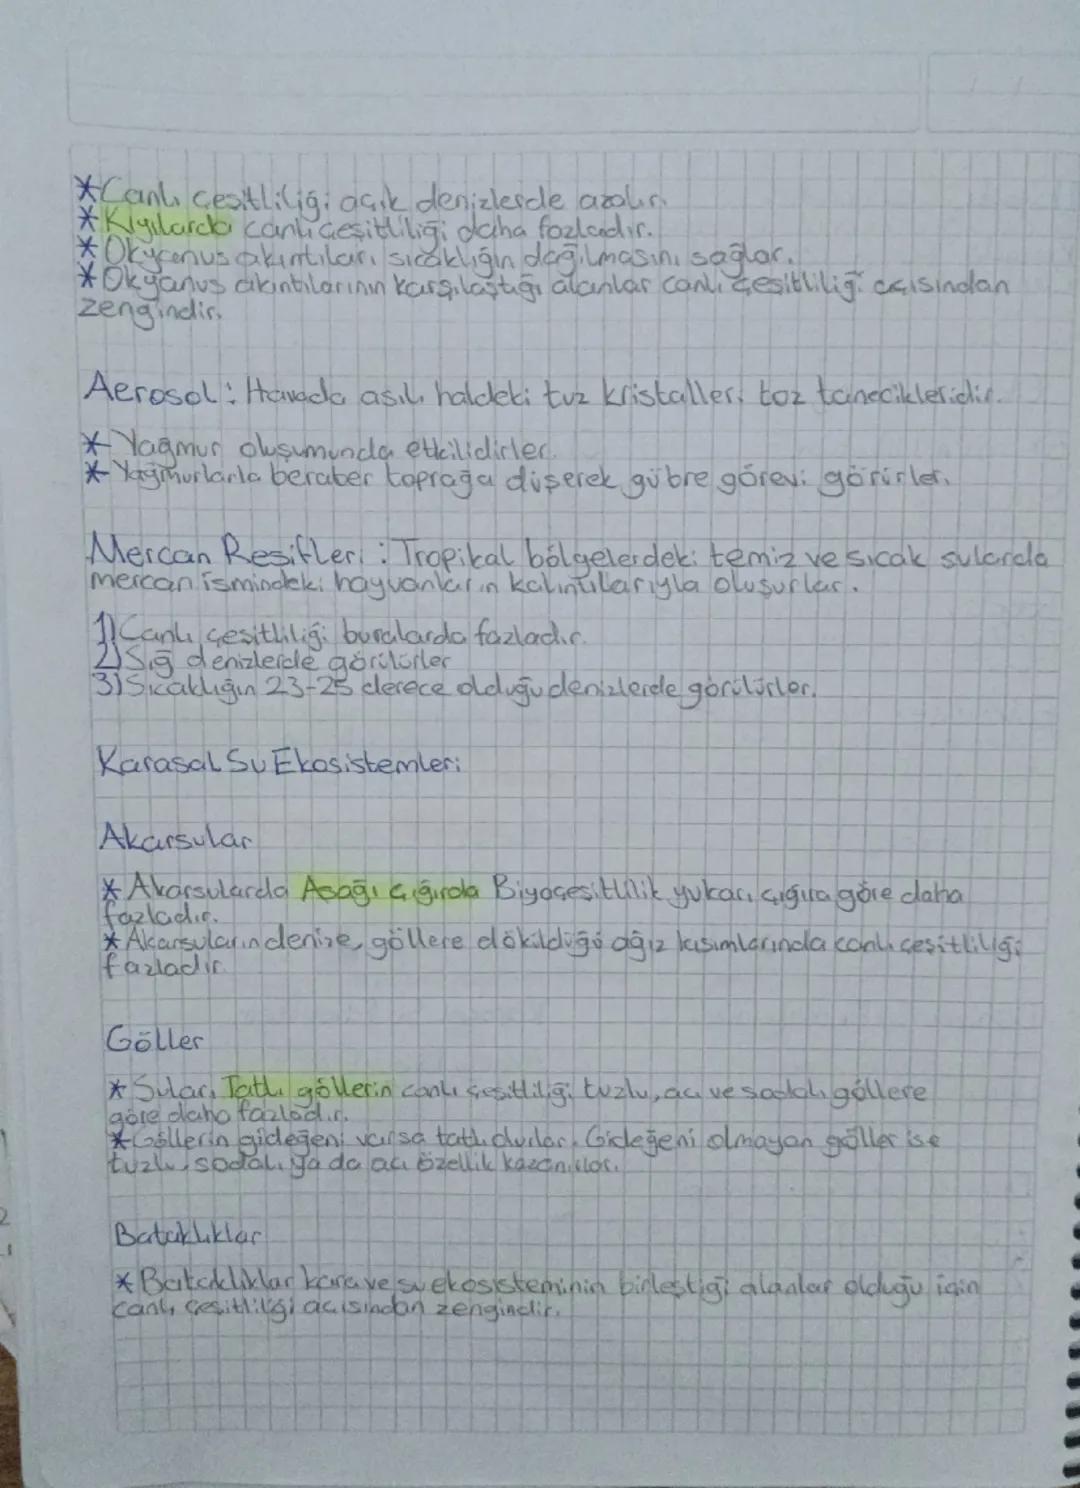 *Canlı çeşitliliği açık denizlerde azalır.
*Kıyılarda canlı çeşitliliği daha fazladır.
*Okyanus akıntıları sıcaklığın dağılmasını sağlar.
*Okyanus akıntılarının karşılaştığı alanlar canlı çeşitliliği açısından
zengindir.
Aerosol: Havada asılı haldeki tuz kristalleri toz tanecikleridir.
* Yağmur oluşumunda etkilidirler.
* Yağmurlarla beraber toprağa düşerek gübre görevi görürler.
Mercan Resifleri: Tropikal bölgelerdeki temiz ve sıcak sularda
mercan ismindeki hayvanların kalıntılarıyla oluşurlar.
1) Canlı çeşitliliği buralarda fazladır.
2) Sığ denizlerde görülürler
3) Sıcaklığın 23-25 derece olduğu denizlerde görülürler.
Karasal Su Ekosistemleri
Akarsular
* Akarsularda Aşağı çığırda Biyoçeşitlilik yukarı çığıra göre daha
fazladır.
* Akarsuların denize, göllere döküldüğü ağız kısımlarında canlı çeşitliliği
fazladır.
Göller
* Suları Tatlı göllerin canlı çeşitliliği tuzlu, acı ve sodalı göllere
göre daha fazladır.
* Göllerin gideğeni varsa tatlı olurlar. Gideğeni olmayan göller ise
tuzlu, sodalı ya da acı özellik kazanırlar.
Bataklıklar
* Bataklıklar kara ve su ekosisteminin birleştiği alanlar olduğu için
canlı çeşitliliği açısından zengindir.